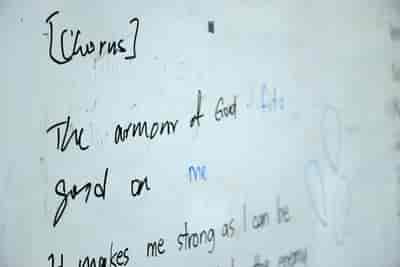 [Chorus]
The armour of God fits
good on me
It makes me strong as I can be
the enemy